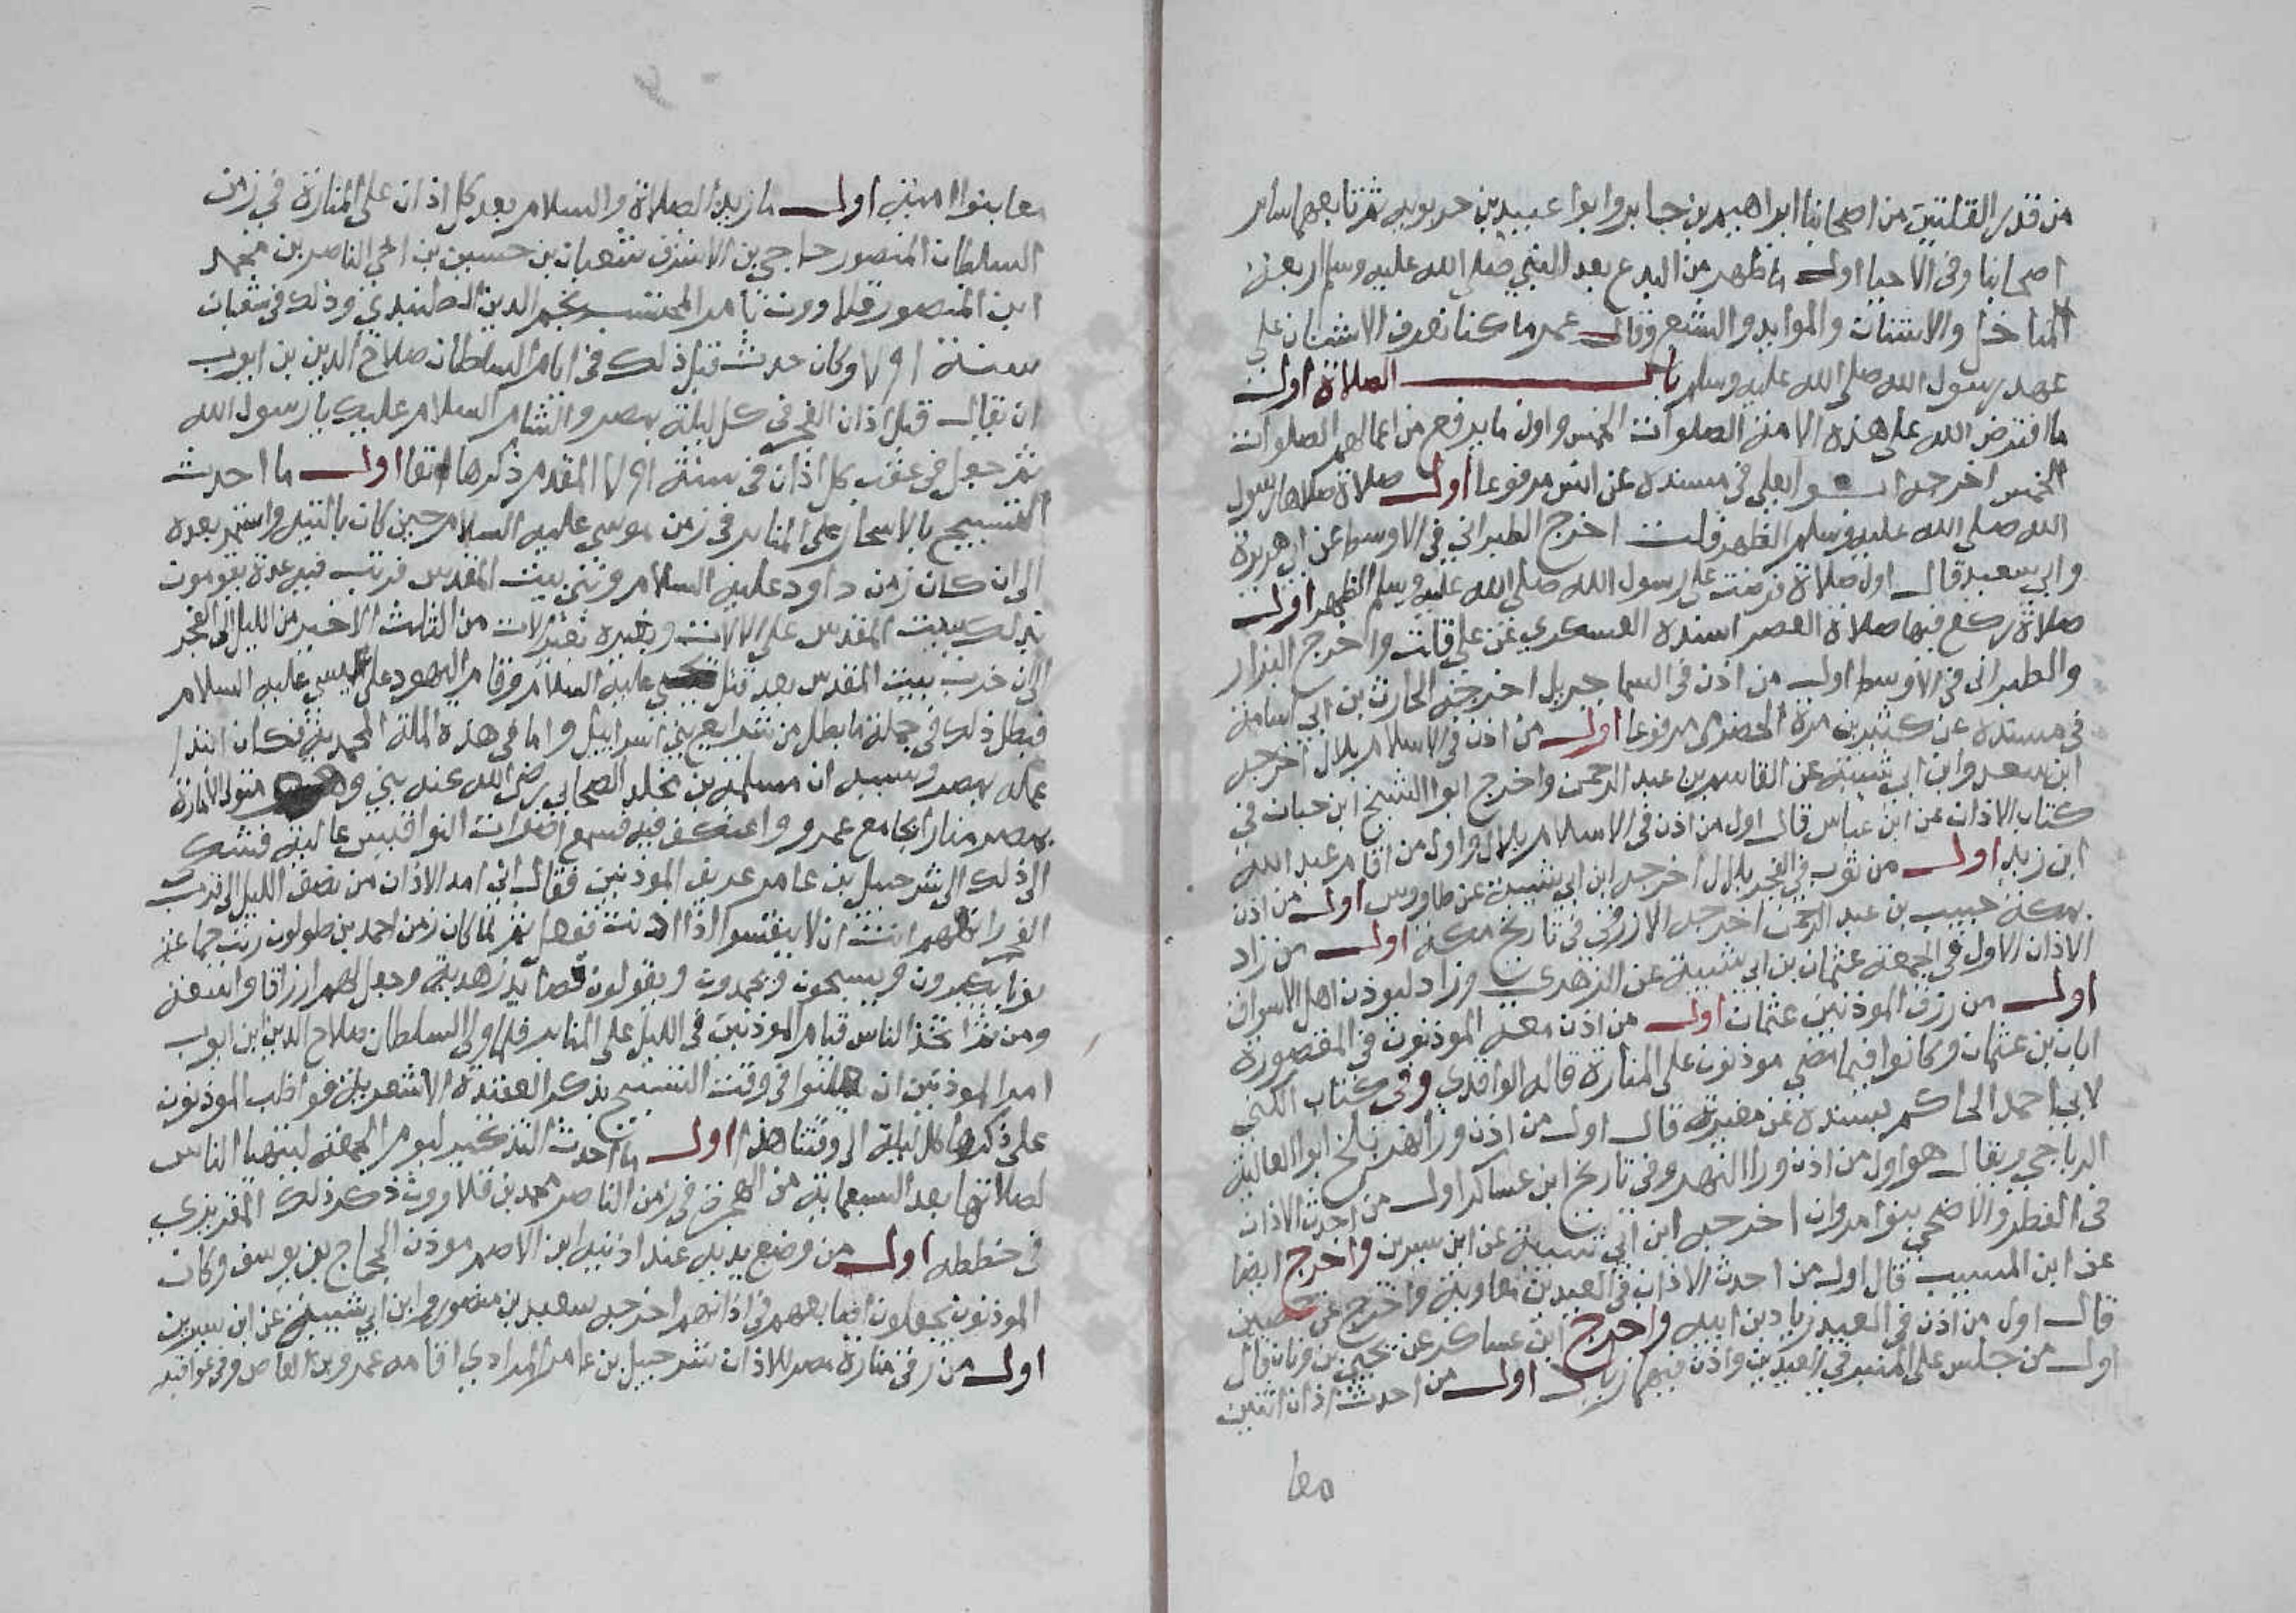 من قدر القلتين من اصحابنا ابراهيم بن جابر وابوا عبيد بن حربويه ثم تابعهما سائر
اصحابنا وفي الاحيا اول ما ظهر من البدع بعد النبي صلى الله عليه وسلم اربعة
المناخل والاشنان والموايد والشبع وقال عمر ما كنا نعرف الاشنان على
عهد رسول الله صلى الله عليه وسلم باب الصلاة اول
ما افترض الله على هذه الامة الصلوات الخمس واول ما يرفع من اعمالهم الصلوات
الخمس اخرجه ابو يعلى في مسنده عن انس مرفوعا اول صلاة صلاها رسول
الله صلى الله عليه وسلم الظهر قلت اخرج الطبراني في الاوسط عن ابي هريرة
وابي سعيد قال اول صلاة فرضت على رسول الله صلى الله عليه وسلم الظهر اول
صلاة ركع فيها صلاة العصر اسنده العسكري عن علي قلت واخرج البزار
والطبراني في الاوسط اول من اذن في السما جبريل اخرجه الحارث بن ابي اسامة
في مسنده عن كثير بن مرة الحضرمي مرفوعا اول من اذن في الاسلام بلال اخرجه
ابن سعد وابن ابي شيبة عن القاسم بن عبد الرحمن واخرج ابوا الشيخ ابن حبان في
كتاب الاذان عن ابن عباس قال اول من اذن في الاسلام بلال واول من اقام عبد الله
ابن زيد اول من ثوب في الفجر بلال اخرجه ابن ابي شيبة عن طاووس اول من اذن
بمكة حبيب بن عبد الرحمن اخرجه الازرقي في تاريخ مكة اول من زاد
الاذان الاول في الجمعة عثمان بن ابي شيبة عن الزهري وزاد ليوذن اهل الاسواق
اول من رزق الموذنين عثمان اول من اذن معه الموذنون في المقصورة
ابان بن عثمان وكانوا فيما مضى موذنون على المنارة قاله الواقدي وفي كتاب الكنى
لابي احمد الحاكم بسنده عن مغيرة قال اول من اذن وراالنهر بلخ ابوا العالية
الرياحي ويقال هو اول من اذن ورا النهر وفي تاريخ ابن عساكر اول من احدث الاذان
في الفطر والاضحى بنوا مروان اخرجه ابن ابي شيبة عن ابن سيرين واخرج ايضا
عن ابن المسيب قال اول من احدث الاذان في العيدين معاوية واخرج عن حصين
قال اول من اذن في العيد زياد بن ابيه واخرج ابن عساكر عن يحيى بن وثاب قال
اول من جلس على المنبر في العيدين واذن فيهما زياد اول من احدث اذان اثنين
معا
معا بنوا امية اول ما زيد الصلاة والسلام بعد كل اذان على المنارة في زمن
السلطان المنصور حاجي بن الاشرف شعبان بن حسين بن اخي الناصر بن محمد
ابن المنصور قلاوون بامر المحتسب نجم الدين الطنبدي وذلك في شعبان
سنة ٧٩١ وكان حدث قبل ذلك في ايام السلطان صلاح الدين بن ايوب
ان يقال قبل اذان الفجر في كل ليلة بمصر والشام السلام عليك يا رسول الله
ثم جعل في عقب كل اذان في سنة ٧٩١ المقدم ذكرها انفا اول ما احدث
التسبيح بالاسحار على المناير في زمن موسى عليه السلام حين كان بالتيه واستمر بعده
الى ان كان زمن داود عليه السلام وبنى بيت المقدس فرتب فيه عدة يقومون
بذلك ببيت المقدس على الالات وبغيره بغير الات من الثلث الاخير من الليل الى الفجر
الى ان خرب بيت المقدس بعد قتل يحيى عليه السلام وقام اليهود على عيسى عليه السلام
فبطل ذلك في جملة ما بطل من شرايع بني اسراييل واما في هذه الملة المحمدية فكان ابتدا
عمله بمصر وسببه ان مسلمة بن مخلد الصحابي رضي الله عنه بنى وهو متولي الامارة
بمصر منارا بجامع عمرو واعتكف فيه فسمع اصوات النواقيس عالية فشكى
الى ذلك الى شرحبيل بن عامر عريف الموذنين فقال اني امد الاذان من نصف الليل الى قرب
الفجر فانههم انت ان لا ينقسوا اذا اذنت ففعل ثم لما كان زمن احمد بن طولون رتب جماعة
نوبا يكبرون ويسبحون ويحمدون ويقولون قصايد زهدية وجعل لهم ارزاقا واسعة
ومن ثم اتخذ الناس قيام الموذنين في الليل على المناير فلما ولي السلطان صلاح الدين ابن ايوب
امر الموذنين ان يعلنوا في وقت التسبيح بذكر العقيدة الاشعرية فواظب الموذنون
على ذكرها كل ليلة الى وقتنا هذا اول ما احدث التذكير ليوم الجمعة ليتهيا الناس
لصلاتها بعد السبعماية من الهجرة في زمن الناصر محمد بن قلاوون ذكر ذلك المقريزي
في خططه اول من وضع يديه عند اذنيه ابن الاصم موذن الحجاج بن يوسف وكان
الموذنون يجعلون اصابعهم في اذانهم اخرجه سعيد بن منصور وابن ابي شيبة عن ابن سيرين
اول من رقى منارة مصر للاذان شرحبيل بن عامر المرادي اقامه عمرو بن العاص وفي عرافته